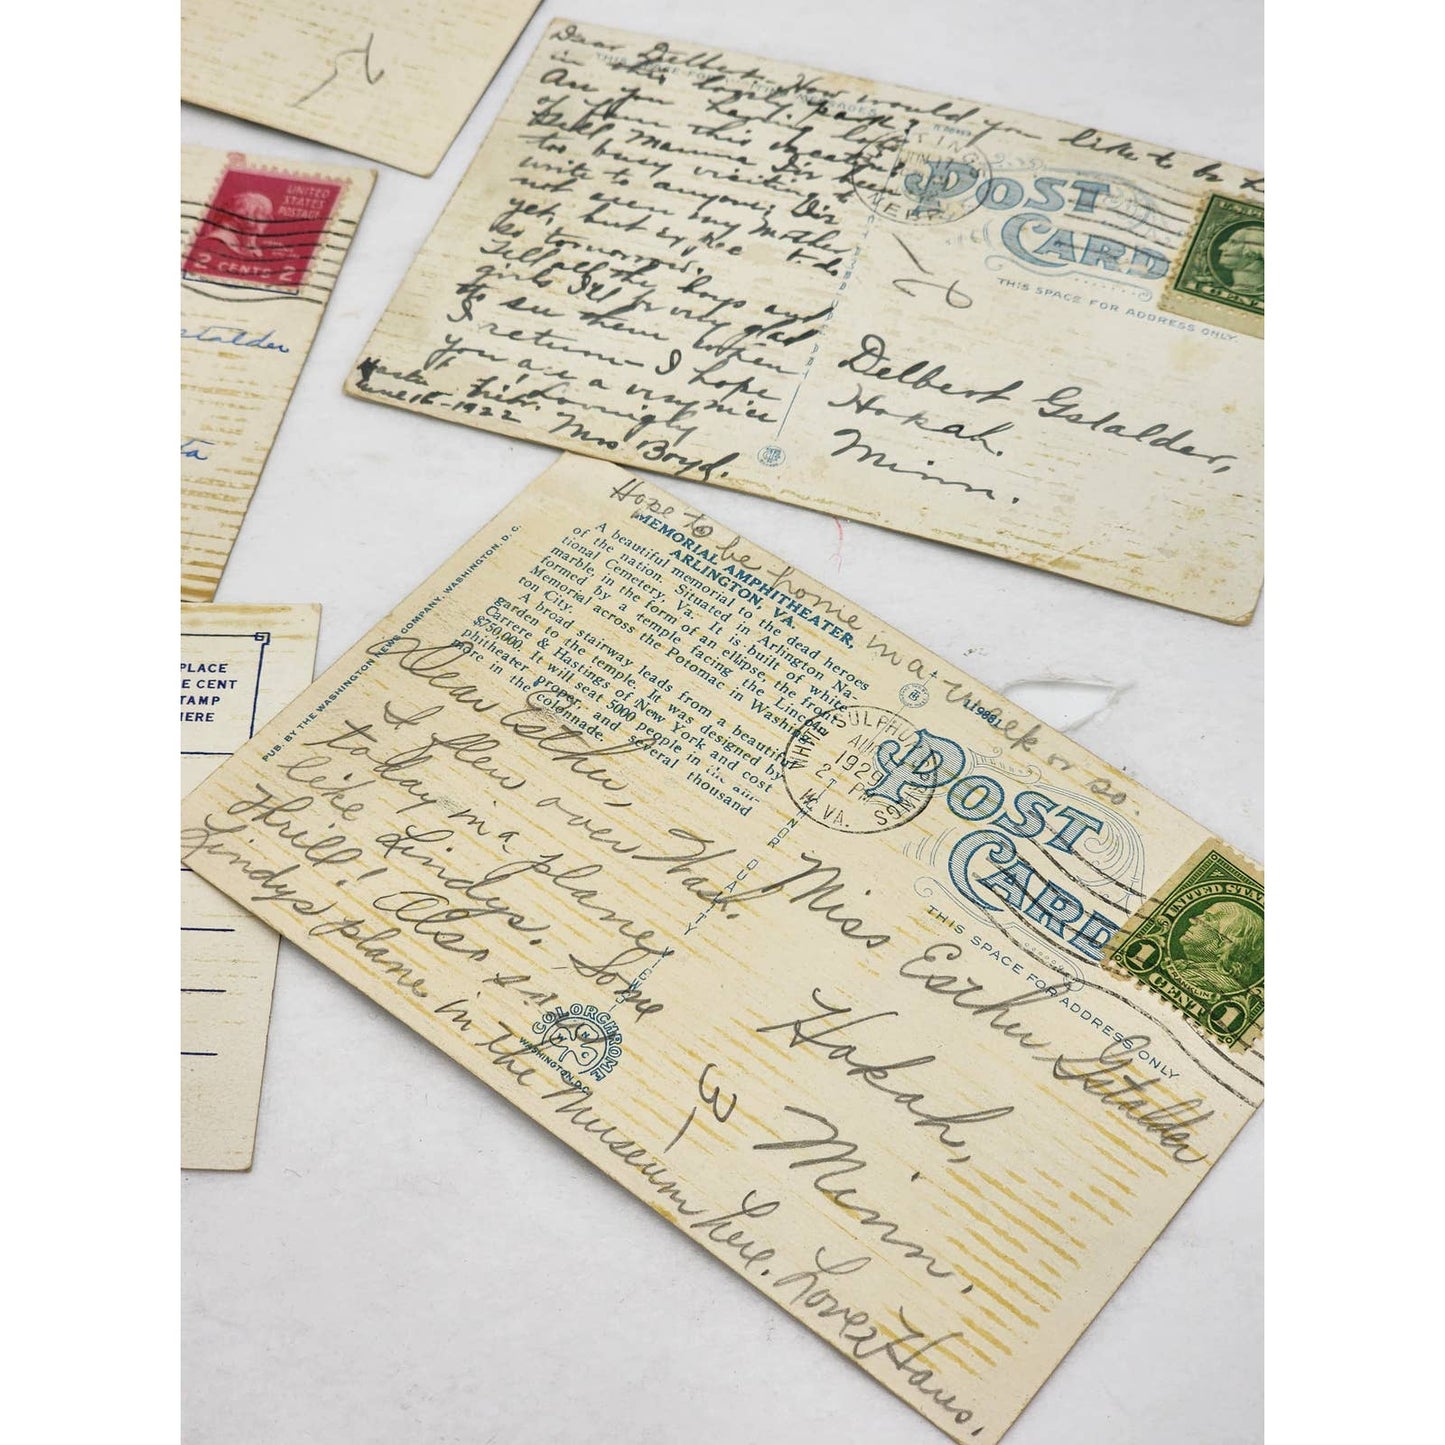 UNITED
STATES
POSTAGE
2 CENTS 2
stalder
ta
PLACE
E CENT
TAMP
HERE
Dear Delbert - How would you like to be
in this lovely park?
THIS SPACE FOR
Are you having lots
of fun this vacation?
Tell Mamma I've been
too busy visiting to
write to anyone;
not even my Mother
yet, but
to-morrow.
Tell all the boys and
girls I'll be very glad
to see them when
I return - I hope
you are a very nice
boy. Lovingly
Nebr.
June 15-1922 Mrs Boyd.
NEBR
POST
CARD
THIS SPACE FOR ADDRESS ONLY
Delbert Gstalder,
Hokah.
Minn.
Hope to be home in a week or so.
MEMORIAL AMPHITHEATER,
ARLINGTON, VA.
A beautiful memorial to the dead heroes
of the nation. Situated in Arlington Na-
tional Cemetery, Va. It is built of white
marble, in the form of an ellipse, the front
formed by a temple facing the Lincoln
Memorial across the Potomac in Washing-
ton City.
A broad stairway leads from a beautiful
garden to the temple. It was designed by
Carrere & Hastings of New York and cost
$750,000. It will seat 5000 people in the am-
phitheater proper, and several thousand
more in the colonnade.
PUB. BY THE WASHINGTON NEWS COMPANY, WASHINGTON, D. C.
Dear Esther,
I flew over Wash.
today in a plane
like Lindys. Some
thrill! Also
Lindys plane in the Museum here. Love
COLORCHROME
WASHINGTON D.C.
QUALITY VIEWS
119881
WHITE SULPHUR SPRINGS
AUG
1929
2 PM
W. VA.
POST
CARD
THIS SPACE FOR ADDRESS ONLY
UNITED STATES
FRANKLIN
1 CENT 1
Miss Esther Gstalder
Hokah,
Minn.